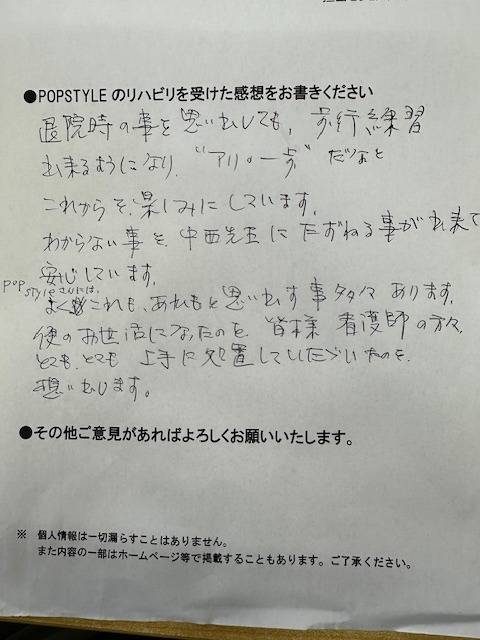 ●POPSTYLE のリハビリを受けた感想をお書きください
退院時の事を思い出しても、歩行練習
出来るようになり、"アリの一歩"だなぁと
これからを楽しみにしています。
わからない事を、中西先生にたずねる事が出来て
安心しています。
POP styleさんには、
よく これも、あれもと思い出す事多々あります。
便のお世話になったのを、皆様 看護師の方々、
とても、とても 上手に処置していただいたのを、
想い出します。
●その他ご意見があればよろしくお願いいたします。
※ 個人情報は一切漏らすことはありません。
また内容の一部はホームページ等で掲載することもあります。ご了承ください。